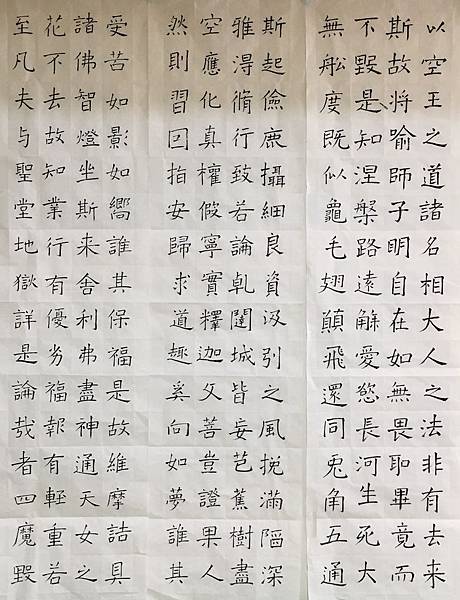 以空王之道諸名相大人之法非有去来
斯故將喻師子明自在如無畏耴畢竟而
不毀是知涅槃路遠解愛慾長河生死大
無舩度既似龜毛翅顛飛還同兎角五通
斯起儉鹿攝細良資汲引之風挩滿陋深
雅淂脩行致若論乹闥城皆妄芭蕉樹盡
空應化真權假寧實釋迦文菩豈證果人
然則習囙指安歸求道趣奚向如夢誰其
受苦如影如嚮誰其保福是故維摩詰具
諸佛智燈坐斯来舍利弗盡神通天女之
花不去故知業行有優劣福報有輕重若
至凡夫与聖堂地獄詳是論哉者四魔毀